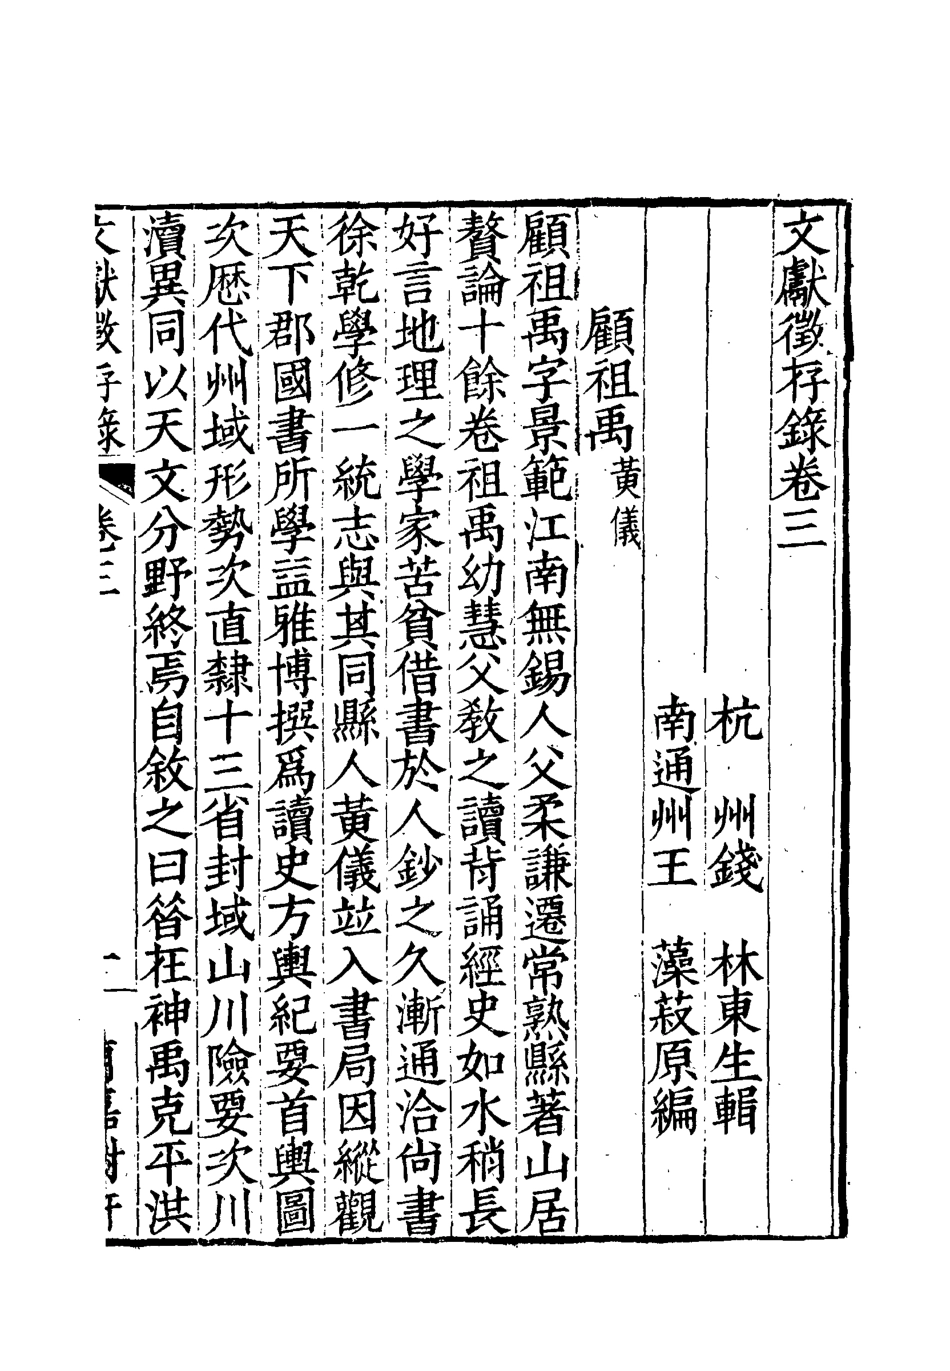 文獻徵存錄卷三
杭州錢林東生輯
南通州王藻菽原編
顧祖禹黃儀
顧祖禹字景範江南無錫人父柔謙遷常熟縣著山居
贅論十餘卷祖禹幼慧父教之讀背誦經史如水稍長
好言地理之學家苦貧借書於人鈔之久漸通洽尙書
徐乾學修一統志與其同縣人黃儀竝入書局因縱觀
天下郡國書所學益雅博撰爲讀史方輿紀要首輿圖
次歷代州域形勢次直隸十三省封域山川險要次川
瀆異同以天文分野終焉自敘之曰昝在神禹克平洪
文獻徵存錄 卷三 一